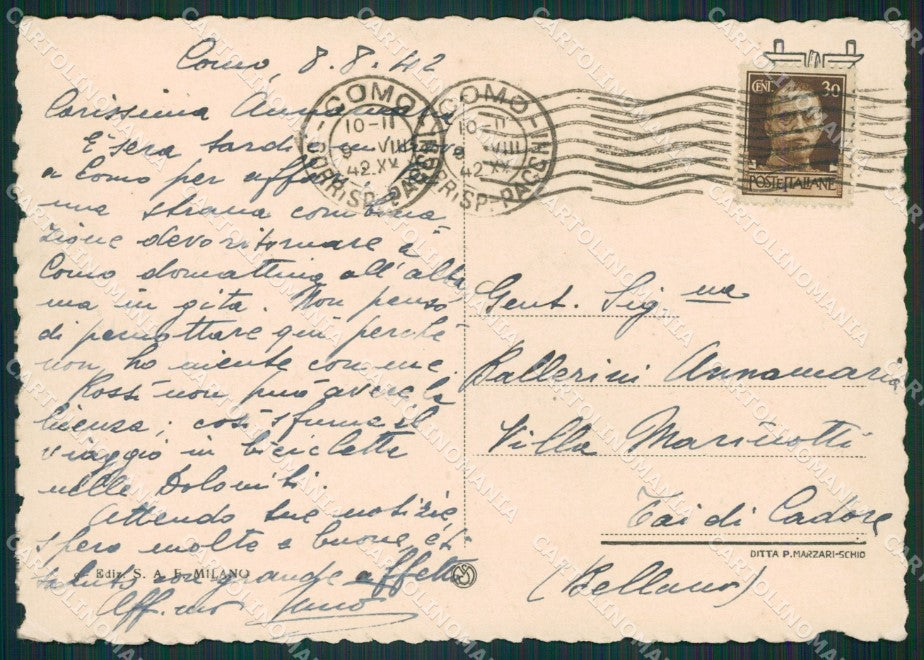 Como, 8.8.42
Carissima Annamaria
È sera tardi
a Como per
una strana combina=
zione devo ritornare a
Como domattina all'alba
ma in gita. Non penso
di pernottare qui perchè
non ho niente con me.
Rossi non può avere la
licenza; così sfuma il
viaggio in bicicletta
nelle Dolomiti.
Attendo tue notizie,
spero molto buone, e ti
saluto con grande affetto
Aff.mo
Ediz. S. A. F. MILANO
COMO
10-11
9 VIII
42.XX
CORRISP-PACCHI
COMO
10-11
9 VIII
42 XX
CORRISP-PACCHI
CENT. 30
POSTE ITALIANE
Gent. Sig.na
Ballerini Annamaria
Villa Marinotti
Tai di Cadore
DITTA P. MARZARI-SCHIO
(Belluno)
CARTOLINOMANIA